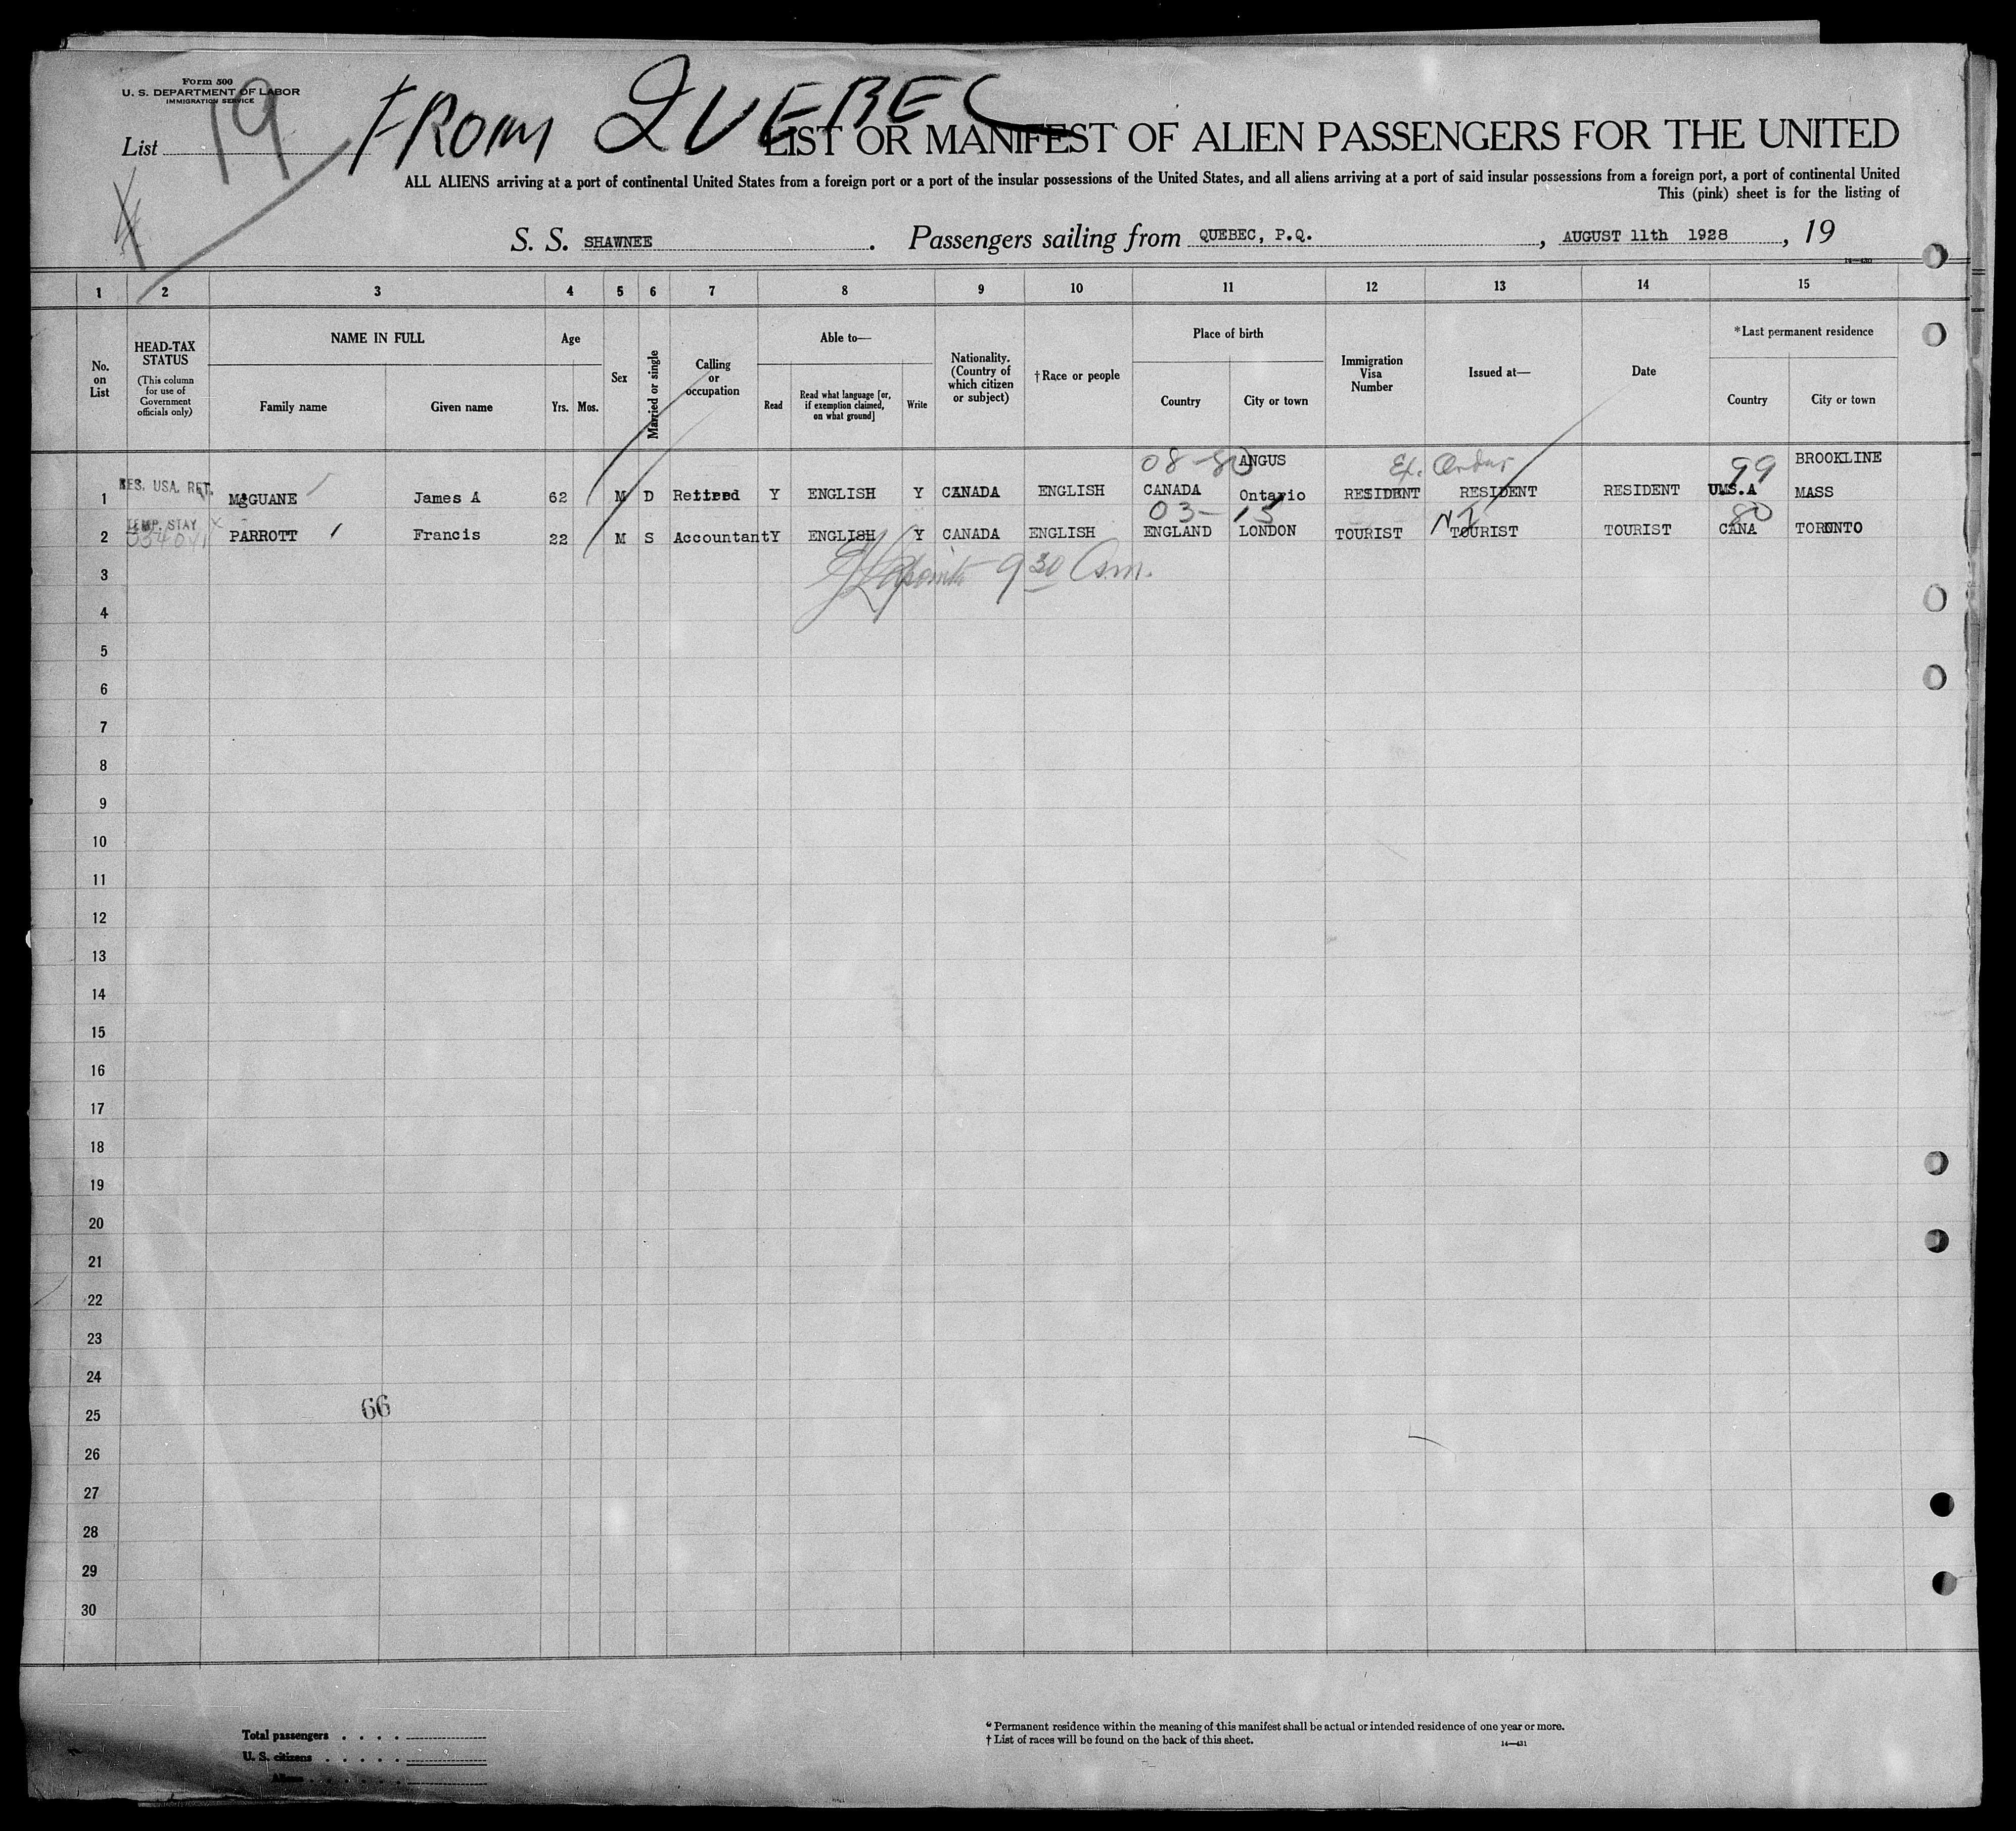 Form 500
U. S. DEPARTMENT OF LABOR
IMMIGRATION SERVICE
List 19
FROM QUEBEC
LIST OR MANIFEST OF ALIEN PASSENGERS FOR THE UNITED
ALL ALIENS arriving at a port of continental United States from a foreign port or a port of the insular possessions of the United States, and all aliens arriving at a port of said insular possessions from a foreign port, a port of continental United
This (pink) sheet is for the listing of
S. S. SHAWNEE . Passengers sailing from QUEBEC, P.Q. , AUGUST 11th 1928 , 19
14—430
1 2 3 4 5 6 7 8 9 10 11 12 13 14 15
No. on List
HEAD-TAX STATUS
(This column for use of Government officials only)
NAME IN FULL
Family name Given name
Age
Yrs. Mos.
Sex
Married or single
Calling or occupation
Able to—
Read
Read what language [or, if exemption claimed, on what ground]
Write
Nationality. (Country of which citizen or subject)
† Race or people
Place of birth
Country City or town
Immigration Visa Number
Issued at—
Date
* Last permanent residence
Country City or town
08-80 ANGUS Ex. Order 99 BROOKLINE
RES. USA. RET.
1 McGUANE James A 62 M D Retired Y ENGLISH Y CANADA ENGLISH CANADA Ontario RESIDENT RESIDENT RESIDENT U.S.A MASS
TEMP. STAY 03- 15 NI 80
2 PARROTT Francis 22 M S Accountant Y ENGLISH Y CANADA ENGLISH ENGLAND LONDON TOURIST TOURIST TOURIST CANA TORONTO
3 9 30 a.m.
4
5
6
7
8
9
10
11
12
13
14
15
16
17
18
19
20
21
22
23
24
25 66
26
27
28
29
30
Total passengers . . . .
U. S. citizens . . . . .
Aliens . . . . . .
* Permanent residence within the meaning of this manifest shall be actual or intended residence of one year or more.
† List of races will be found on the back of this sheet.
14—431